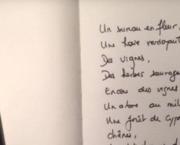 Un sureau en fleur,
Une haie
Des vignes,
Des herbes sauvages
Encore des vignes
Un arbre au mil
Une forêt de Cyp
chênes,